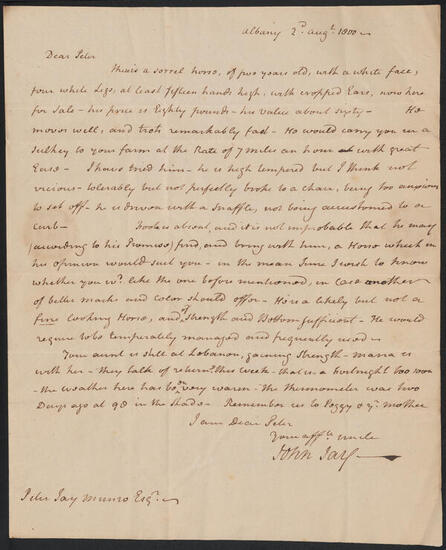 Albany 2d. Augt. 1800 —
Dear Peter
There is a sorrel horse, of two years old, with a white face,
four white Legs, at least fifteen hands high, with cropped Ears, now here
for Sale — his price is Eighty pounds — his value about sixty — He
moves well, and trots remarkably fast — He would carry you in a
Sulkey to your farm at the Rate of 7 miles an hour with great
Ease — I have tried him — he is high tempered but I think not
vicious — tolerably but not perfectly broke to a chair, being too anxious
to set off — he is driven with a Snaffle, not being accustomed to a
curb — is absent, and it is not improbable that he may
(according to his Promise) find, and bring with him, a Horse which in
his opinion would suit you — in the mean Time I wish to know
whether you wd. like the one before mentioned, in case another
of better marks and color should offer — He is a likely but not a
fine looking Horse, and Strength and Bottom sufficient — He would
require to be temperately managed and frequently used —
Your aunt is still at Lebanon, gaining Strength — maria is
with her — they talk of returng. this week — that is a fortnight too soon
— the weather here has been very warm — the thermometer was two
Days ago at 90 in the Shade — Remember us to Peggy & yr. mother
I am Dear Peter
Your affte. uncle
John Jay —
Peter Jay Munro Esqr. —